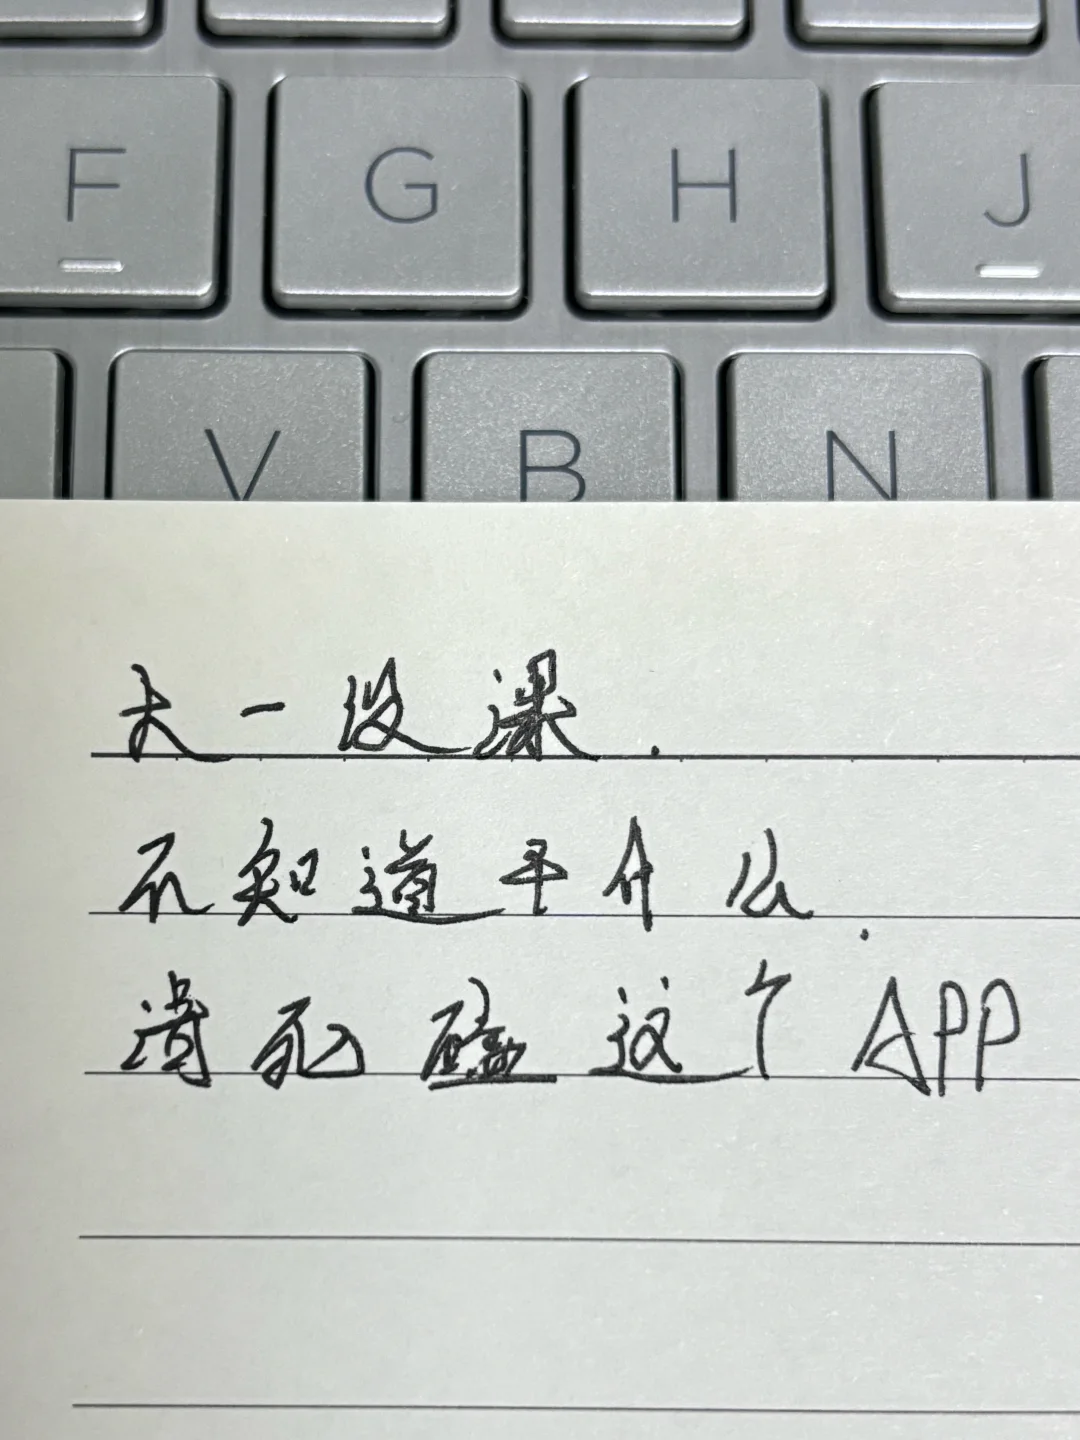 F G H J
V B N
大一没课.
不知道干什么.
请死磕这个APP